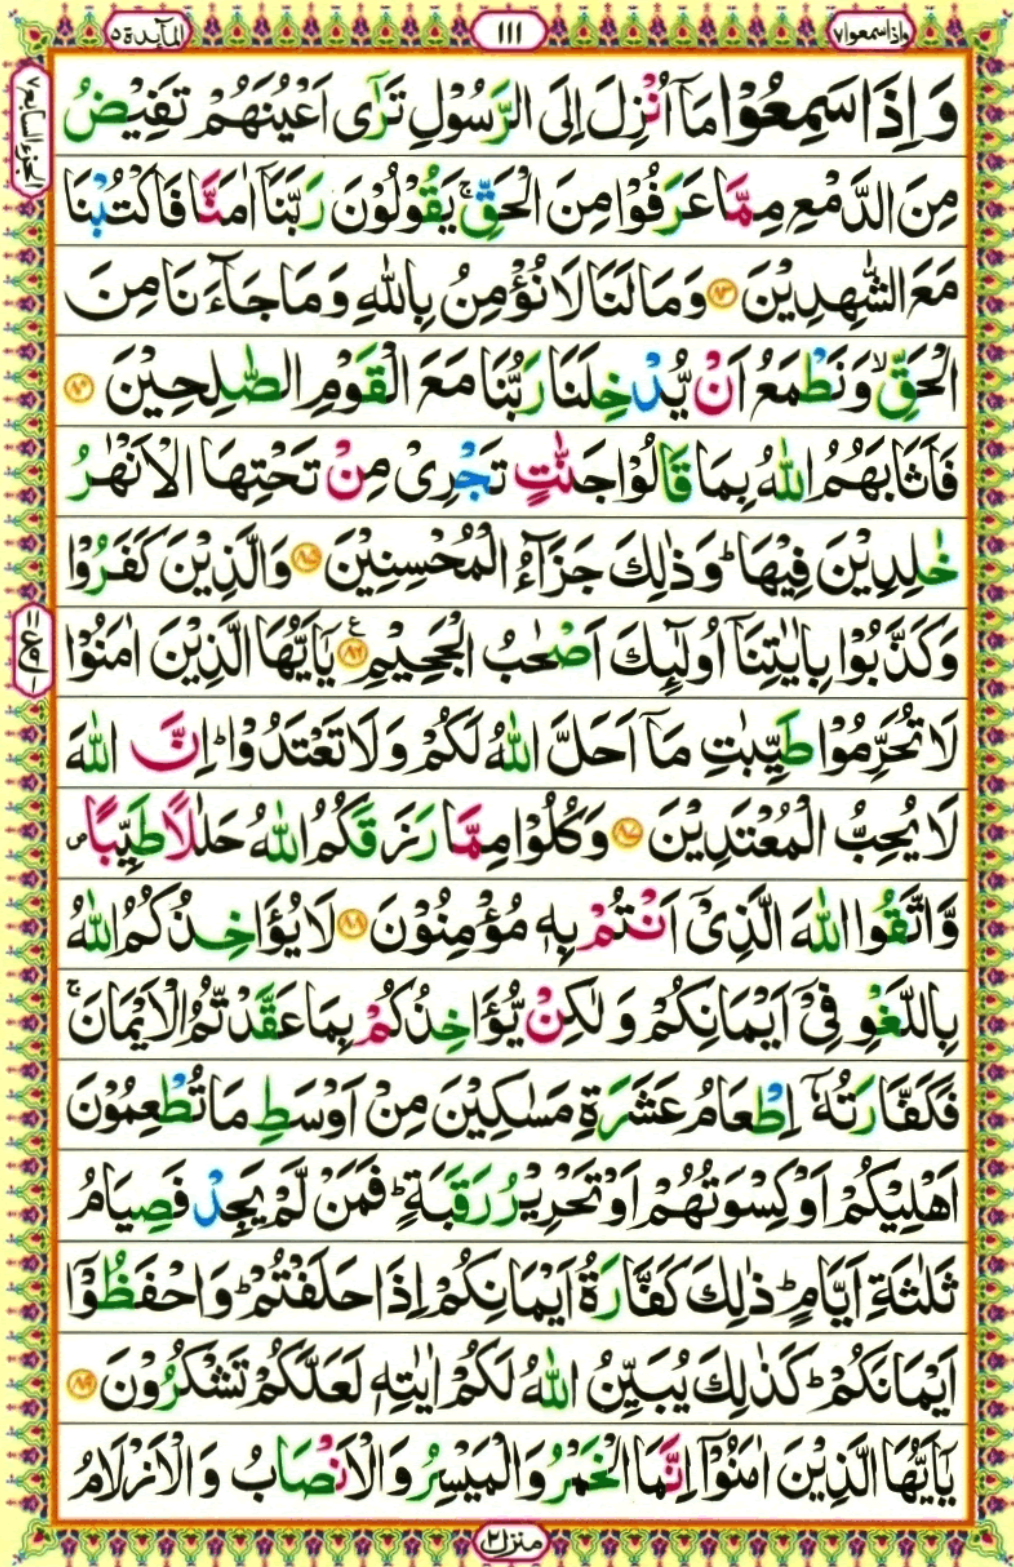 واذاسمعوا٧
١١١
المآىٕدة ٥
الجزء السابع ٧
وَ اِذَا سَمِعُوْا مَاۤ اُنْزِلَ اِلَى الرَّسُوْلِ تَرٰۤى اَعْیُنَهُمْ تَفِیْضُ
مِنَ الدَّمْعِ مِمَّا عَرَفُوْا مِنَ الْحَقِّ ۚ یَقُوْلُوْنَ رَبَّنَاۤ اٰمَنَّا فَاكْتُبْنَا
مَعَ الشّٰهِدِیْنَ ﴿۸۳﴾ وَ مَا لَنَا لَا نُؤْمِنُ بِاللّٰهِ وَ مَا جَآءَنَا مِنَ
الْحَقِّ ۙ وَ نَطْمَعُ اَنْ یُّدْخِلَنَا رَبُّنَا مَعَ الْقَوْمِ الصّٰلِحِیْنَ ﴿۸۴﴾
فَاَثَابَهُمُ اللّٰهُ بِمَا قَالُوْا جَنّٰتٍ تَجْرِیْ مِنْ تَحْتِهَا الْاَنْهٰرُ
خٰلِدِیْنَ فِیْهَا ؕ وَ ذٰلِكَ جَزَآءُ الْمُحْسِنِیْنَ ﴿۸۵﴾ وَ الَّذِیْنَ كَفَرُوْا
وَ كَذَّبُوْا بِاٰیٰتِنَاۤ اُولٰٓىِٕكَ اَصْحٰبُ الْجَحِیْمِ ﴿۸۶﴾ ع یٰۤاَیُّهَا الَّذِیْنَ اٰمَنُوْا
لَا تُحَرِّمُوْا طَیِّبٰتِ مَاۤ اَحَلَّ اللّٰهُ لَكُمْ وَ لَا تَعْتَدُوْا ؕ اِنَّ اللّٰهَ
لَا یُحِبُّ الْمُعْتَدِیْنَ ﴿۸۷﴾ وَ كُلُوْا مِمَّا رَزَقَكُمُ اللّٰهُ حَلٰلًا طَیِّبًا ۪
وَّ اتَّقُوا اللّٰهَ الَّذِیْۤ اَنْتُمْ بِهٖ مُؤْمِنُوْنَ ﴿۸۸﴾ لَا یُؤَاخِذُكُمُ اللّٰهُ
بِاللَّغْوِ فِیْۤ اَیْمَانِكُمْ وَ لٰكِنْ یُّؤَاخِذُكُمْ بِمَا عَقَّدْتُّمُ الْاَیْمَانَ ۚ
فَكَفَّارَتُهٗۤ اِطْعَامُ عَشَرَةِ مَسٰكِیْنَ مِنْ اَوْسَطِ مَا تُطْعِمُوْنَ
اَهْلِیْكُمْ اَوْ كِسْوَتُهُمْ اَوْ تَحْرِیْرُ رَقَبَةٍ ؕ فَمَنْ لَّمْ یَجِدْ فَصِیَامُ
ثَلٰثَةِ اَیَّامٍ ؕ ذٰلِكَ كَفَّارَةُ اَیْمَانِكُمْ اِذَا حَلَفْتُمْ ؕ وَ احْفَظُوْۤا
اَیْمَانَكُمْ ؕ كَذٰلِكَ یُبَیِّنُ اللّٰهُ لَكُمْ اٰیٰتِهٖ لَعَلَّكُمْ تَشْكُرُوْنَ ﴿۸۹﴾
یٰۤاَیُّهَا الَّذِیْنَ اٰمَنُوْۤا اِنَّمَا الْخَمْرُ وَ الْمَیْسِرُ وَ الْاَنْصَابُ وَ الْاَزْلَامُ
منزل ٢